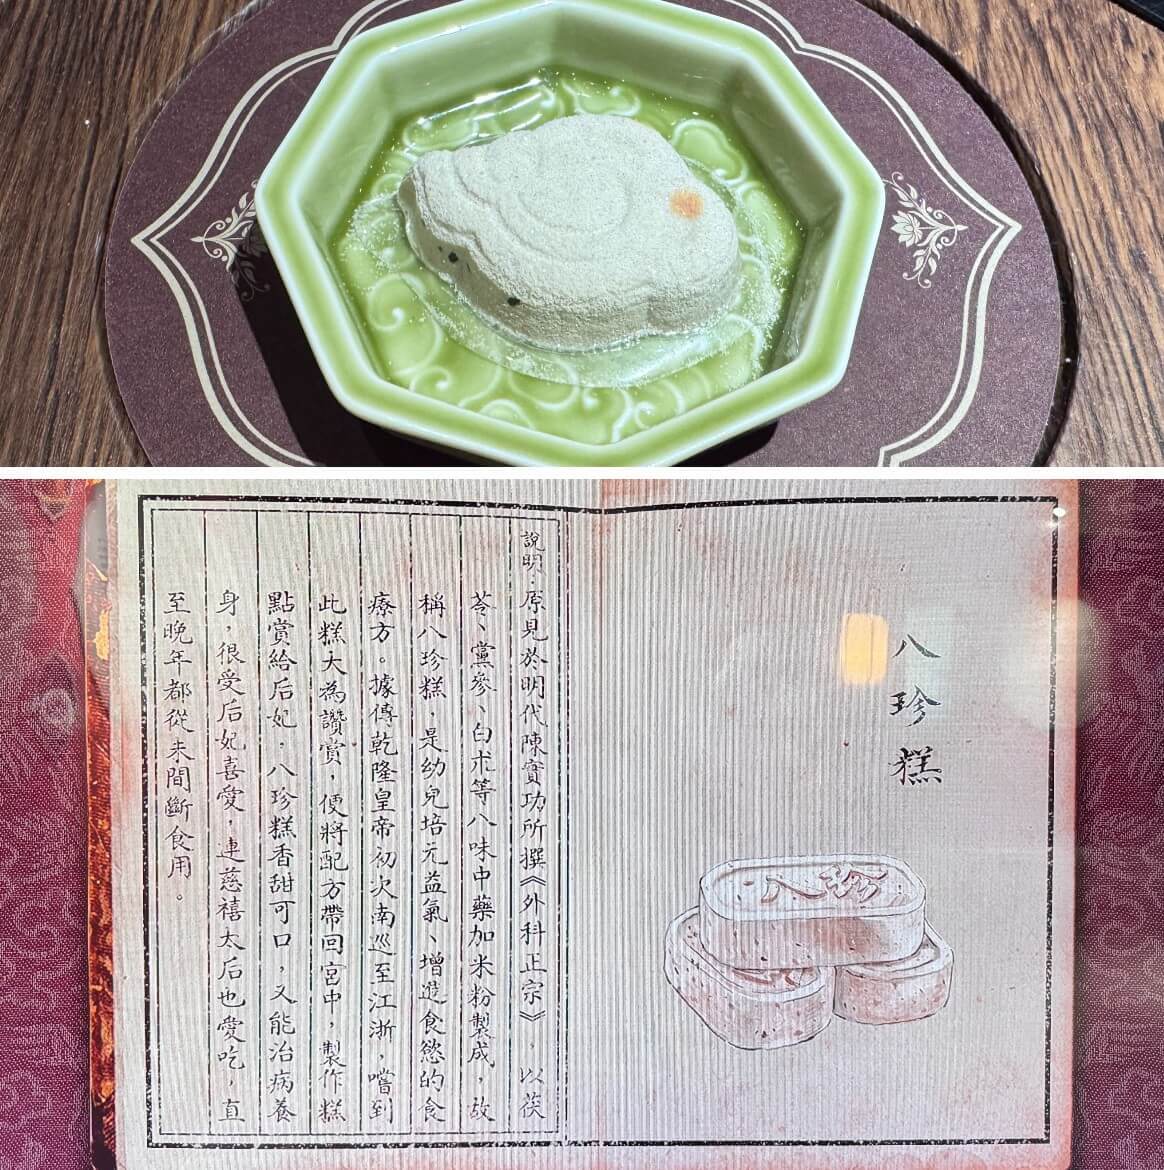 八珍糕
八珍
說明：原見於明代陳實功所撰《外科正宗》，以茯
苓、黨參、白朮等八味中藥加米粉製成，故
稱八珍糕，是幼兒培元益氣、增進食慾的食
療方。據傳乾隆皇帝初次南巡至江浙，嚐到
此糕大為讚賞，便將配方帶回宮中，製作糕
點賞給后妃，八珍糕香甜可口，又能治病養
身，很受后妃喜愛，連慈禧太后也愛吃，直
至晚年都從未間斷食用。